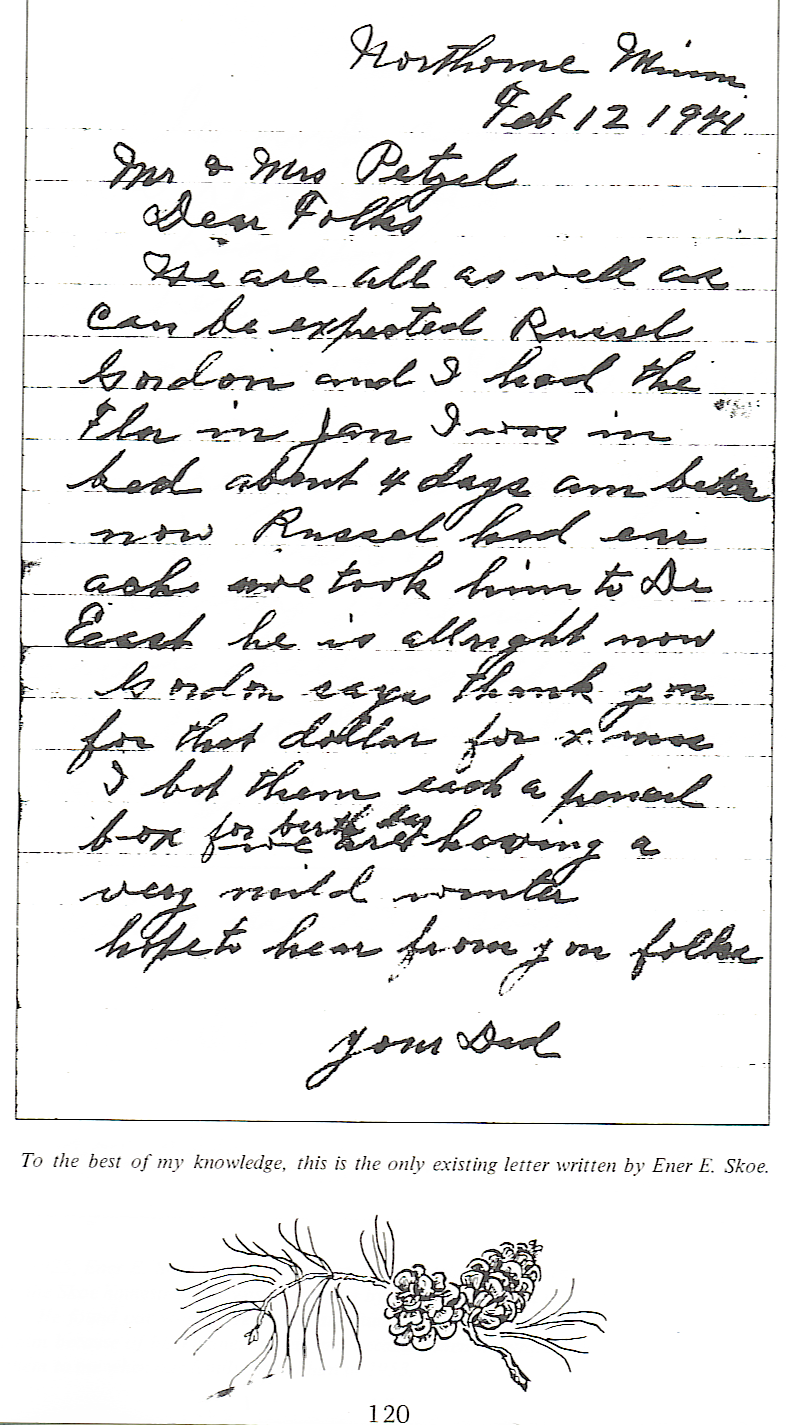 Northome Minn
Feb 12 1941
Mr & Mrs Petzel
Dear Folks
We are all as well as
can be expected Russel
Gordon and I had the
Flu in Jan I was in
bed about 4 days am better
now Russel had ear
ache we took him to Dr
he is allright now
Gordon says thank you
for that dollar for x mas
I bot them each a pencil
box for birth day we are having a
very mild winter
hope to hear from you folks
your Dad
To the best of my knowledge, this is the only existing letter written by Ener E. Skoe.
120